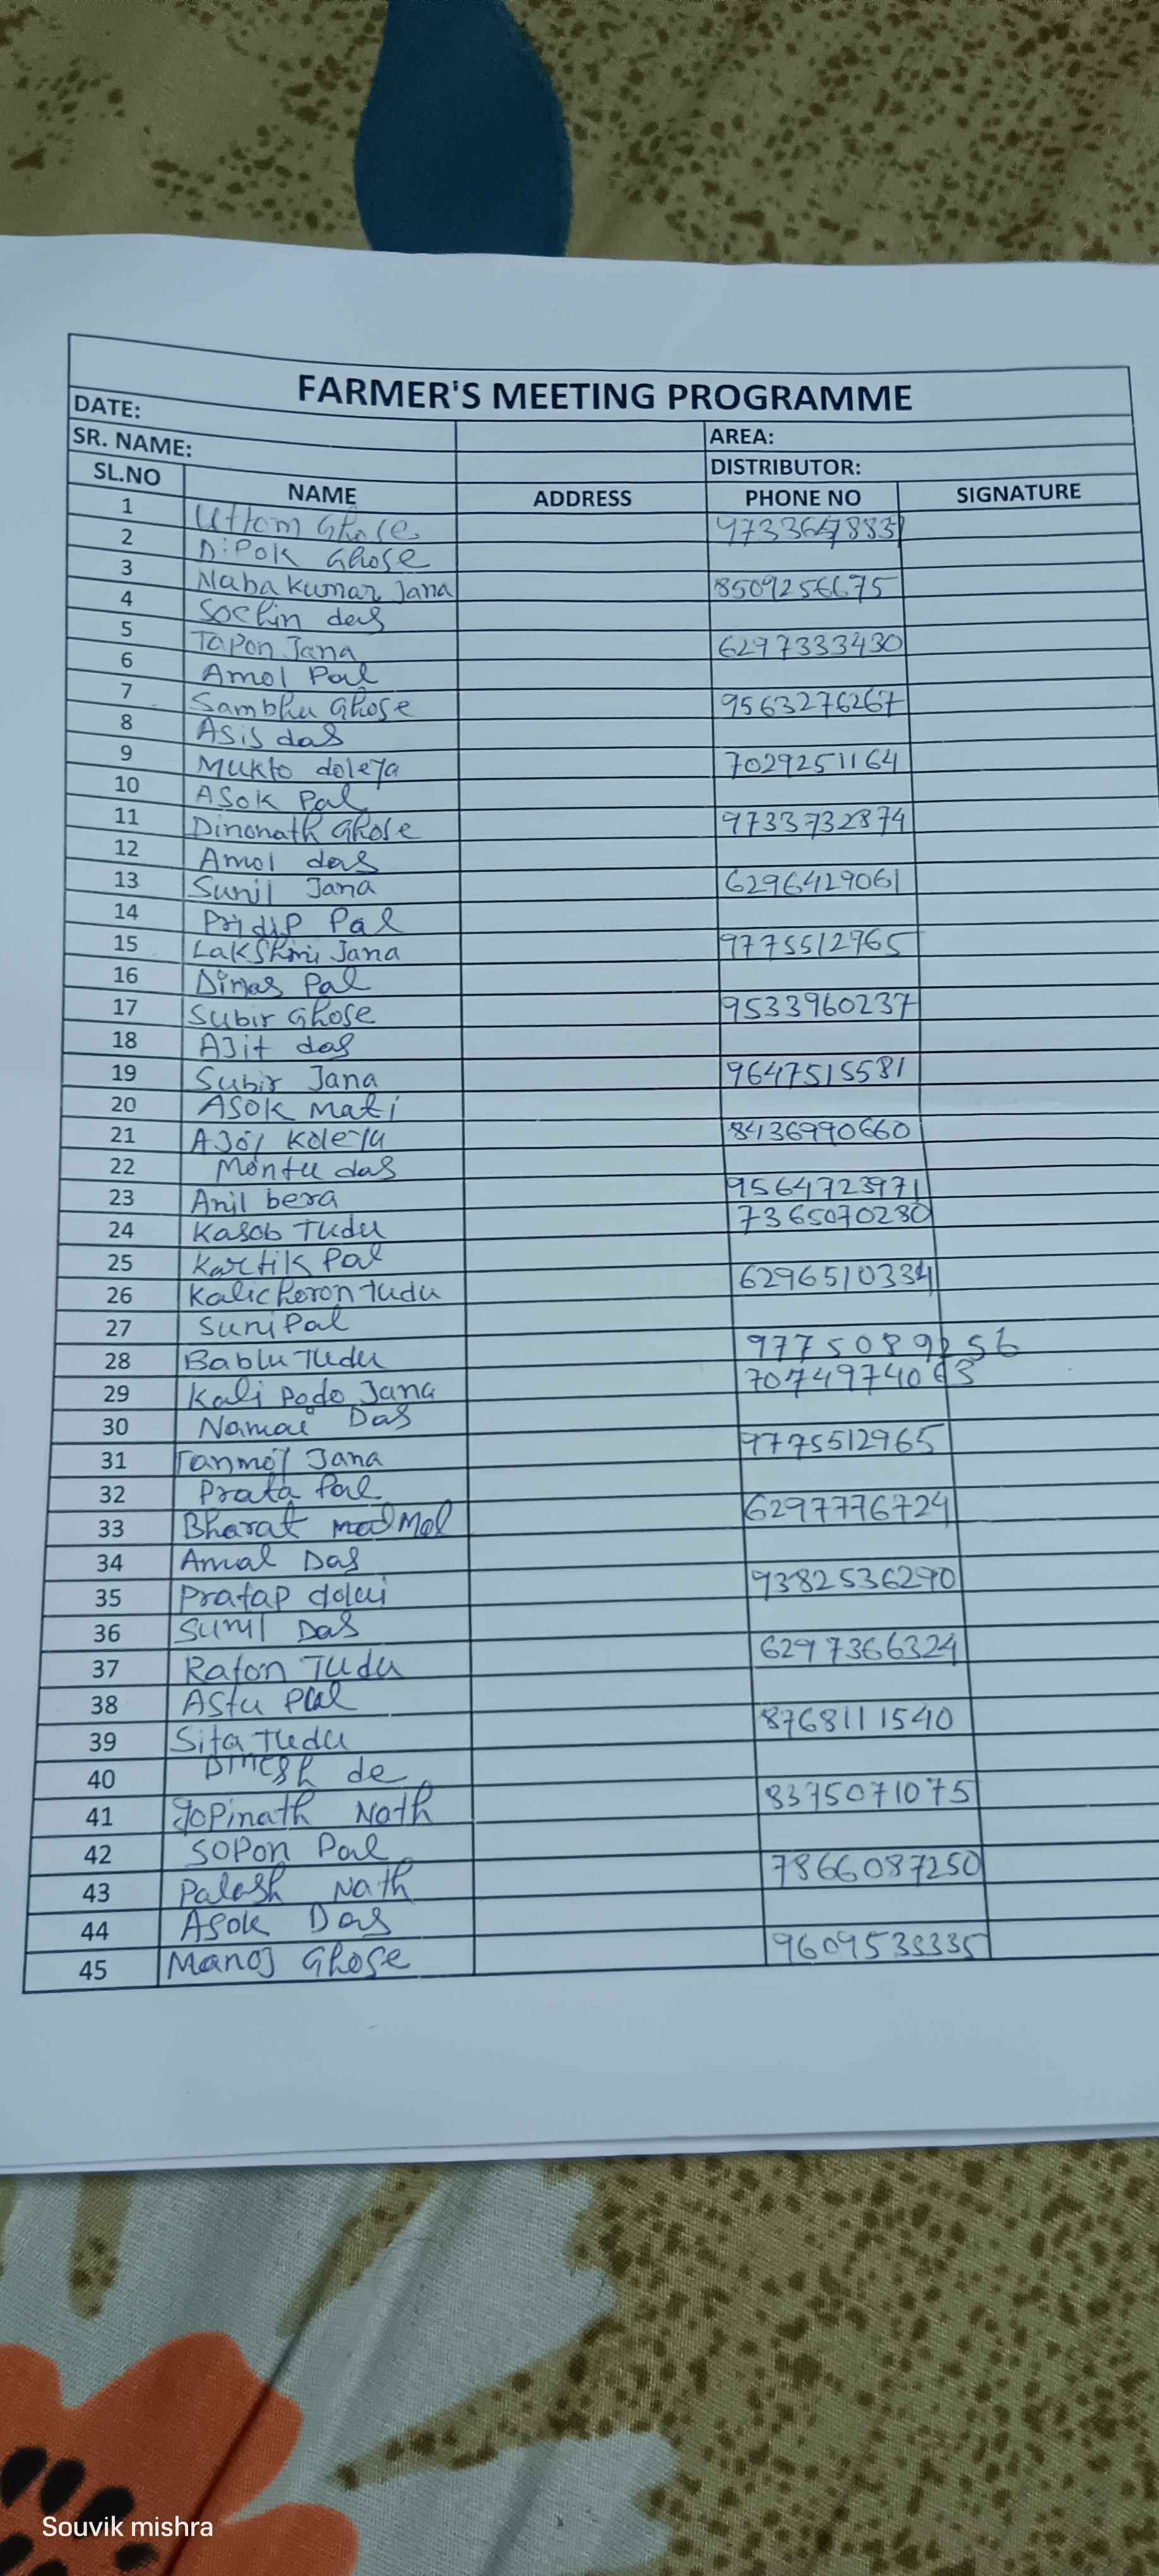 FARMER'S MEETING PROGRAMME
DATE: AREA:
SR. NAME: DISTRIBUTOR:
SL.NO NAME ADDRESS PHONE NO SIGNATURE
1 Uttom Ghose 9733647883
2 Dipok Ghose
3 Naba Kumar Jana 8509256675
4 Sochin das
5 Tapon Jana 6297333430
6 Amol Pal
7 Sambhu Ghose 9563276267
8 Asis das
9 Mukto doleya 7029251164
10 ASOK Pal
11 Dinonath Ghose 9733732874
12 Amol das
13 Sunil Jana 6296429061
14 Pridip Pal
15 Lakshmi Jana 9775512965
16 Pal
17 Subir Ghose 9533960237
18 AJit das
19 Subir Jana 9647515581
20 ASOK Mati
21 AJoy 8436990660
22 Montu das
23 Anil bera 9564723971
24 Kasob Tudu 7365070230
25 Kartik Pal
26 Kalichoron tudu 6296510334
27 Suni Pal
28 Bablu Tudu 9775089256
29 Kali podo Jana 7074974063
30 Namai Das
31 Tanmoy Jana 9775512965
32 Prata Pal
33 Bharat 6297776724
34 Amal Das
35 Pratap dolui 9382536290
36 Sunil Das
37 Raton Tudu 6297366324
38 Astu Pal
39 Sita Tudu 8768111540
40 Dinesh de
41 Gopinath Nath 8375071075
42 SOPon Pal
43 Palash Nath 7866087250
44 Asok Das
45 Manoj Ghose 9609533335
Souvik mishra